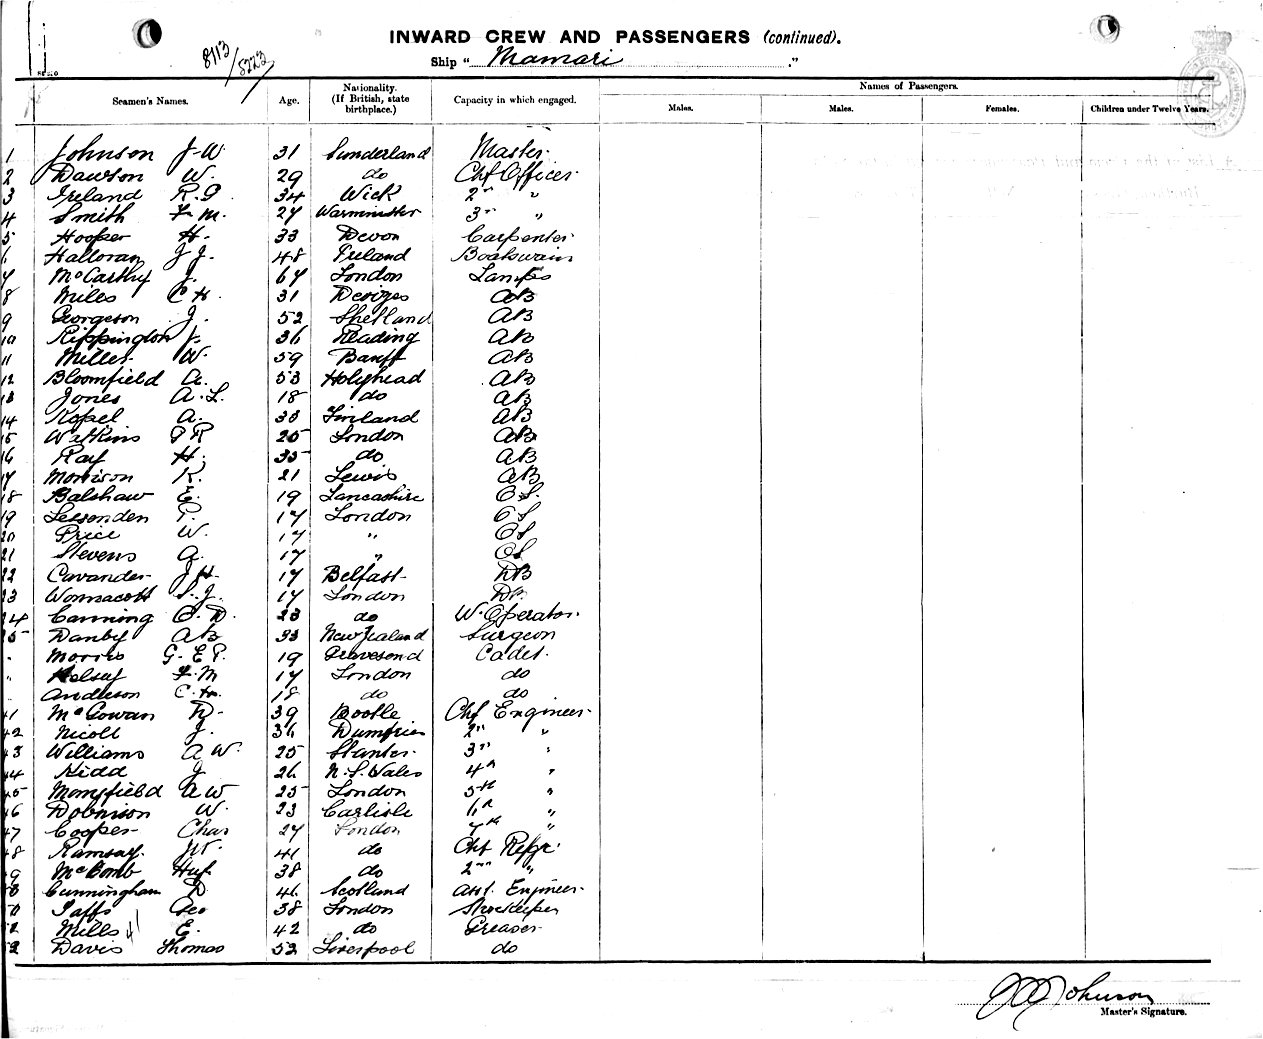 INWARD CREW AND PASSENGERS (continued).
8113/8223
Ship "Mamari"
Seamen's Names. Age. Nationality. (If British, state birthplace.) Capacity in which engaged. Names of Passengers.
Males. Males. Females. Children under Twelve Years.
1 Johnson J. W. 31 Sunderland Master
2 Dawson W. 29 do Chf Officer
3 Ireland R. 34 Wick 2nd "
4 Smith F. M. 27 Warminster 3rd "
5 Hooper H. 33 Devon Carpenter
6 Halloran J J. 48 Ireland Boatswain
7 McCarthy J. 67 London Lamps
8 Miles C H. 31 Devizes AB
9 Georgeson J. 52 Shetland AB
10 Rippington J. 36 Reading AB
11 Miller W. 59 Banff AB
12 Bloomfield A. 53 Holyhead AB
13 Jones A. L. 18 do AB
14 Kopel A. 38 Finland AB
15 Watkins P R 25 London AB
16 Ray H. 35 do AB
17 Morrison K. 21 Lewis AB
18 Balshaw E. 19 Lancashire O S.
19 Lessenden P. 17 London O S
20 Price W. 17 " O S
21 Stevens A. 17 " O S
22 Cavander J H. 17 Belfast DB
23 Wonnacott S. J. 17 London DB
24 Canning C. D. 23 do W. Operator
25 Danby AB 33 New Zealand Surgeon
" Morris G. E P. 19 Gravesend Cadet
" Kelsey F. M 17 London do
" Anderson C. H. 18 do do
41 McGowan D. 39 Bootle Chf Engineer
42 Nicoll J. 36 Dumfries 2nd "
43 Williams A W. 25 3rd "
44 Kidd J 26 N. S. Wales 4th "
45 A W 25 London 5th "
46 Dobinson W. 23 Carlisle 6th "
47 Cooper Chas 27 London 7th "
48 Ramsay W. 41 do Chf Refgr
49 McComb Hug 38 do 2nd "
50 Cunningham D 46 Scotland Asst. Engineer
Jaffs Geo 38 London Storekeeper
52 Mills E. 42 do Greaser
Davis Thomas 52 Liverpool do
J W Johnson
Master's Signature.